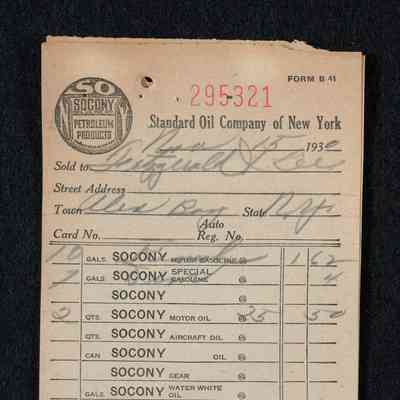 FORM B 41
SO
SOCONY
PETROLEUM
PRODUCTS
295321
Standard Oil Company of New York
Nov 15 1930
Sold to Fitzgerald & Lee
Street Address
Town Alex Bay State N.Y.
Card No. Auto Reg. No.
10 GALS. SOCONY MOTOR GASOLINE @ 1 62
GALS. SOCONY SPECIAL GASOLINE @ 4
SOCONY @
2 QTS. SOCONY MOTOR OIL @ 25 50
QTS. SOCONY AIRCRAFT OIL @
CAN SOCONY OIL @
SOCONY GEAR @
GALS. SOCONY WATER WHITE OIL @